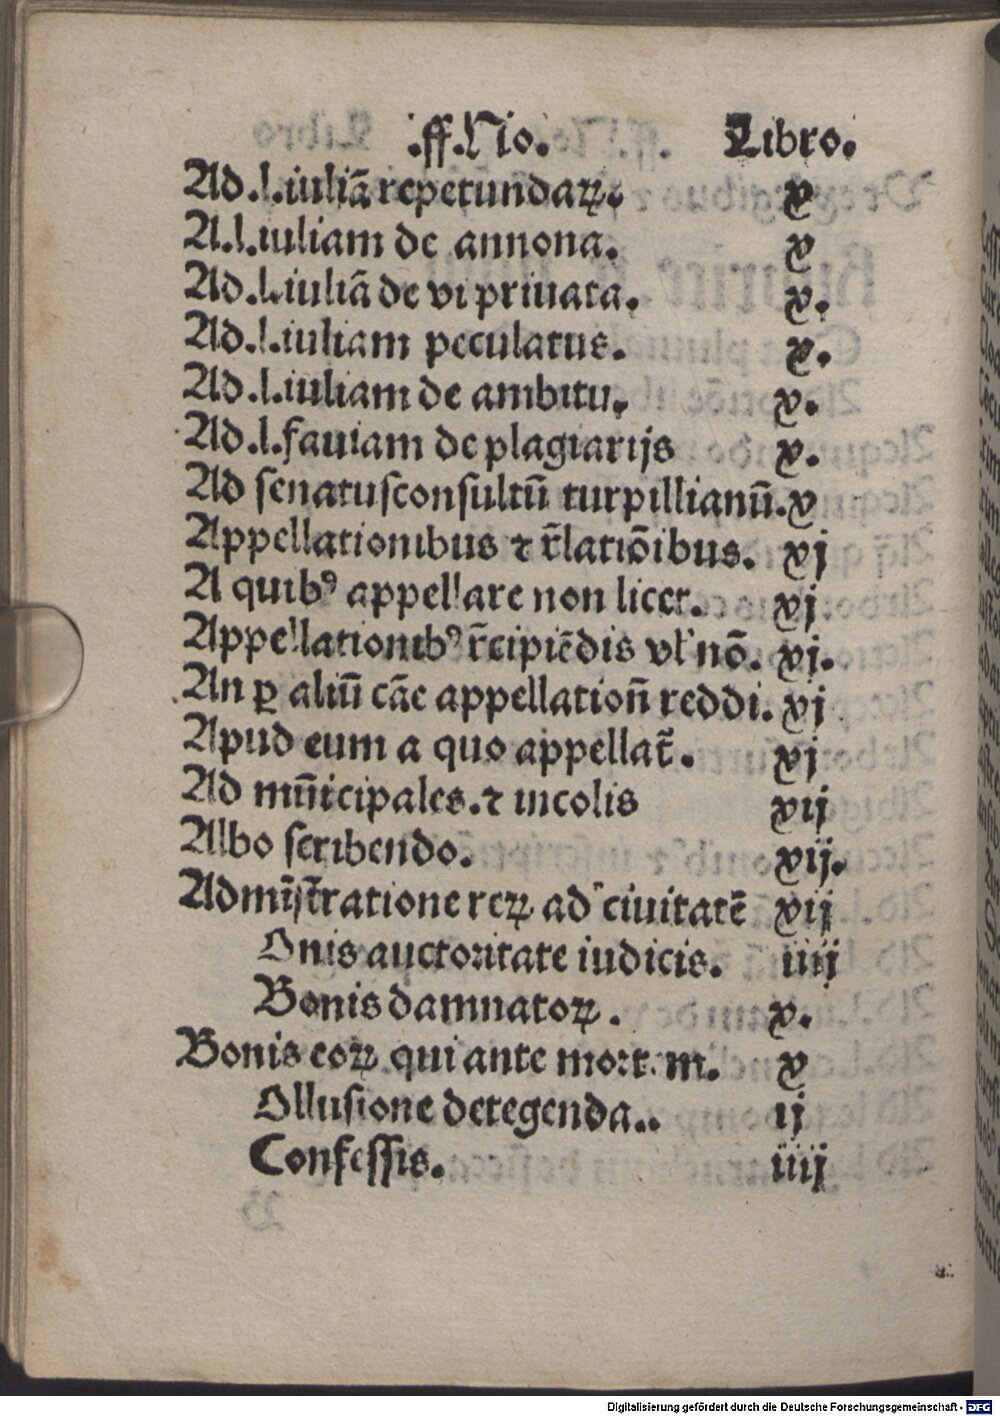 .ff.No. Libro.
Ad.l.iuliā repetundaꝝ. x
A.l.iuliam de annona. x
Ad.l.iuliā de vi priuata. x.
Ad.l.iuliam peculatus. x.
Ad.l.iuliam de ambitu. x.
Ad.l.fauiam de plagiarijs x.
Ad senatusconsultū turpillianū. x
Appellationibus ⁊ r̄latiōibus. xj
A quibꝰ appellare non licet. xj
Appellationibꝰ r̄cipiēdis vl' nō. xj.
An ꝑ aliū cāe appellation̄ reddi. xj
Apud eum a quo appellat̄. xj
Ad mūicipales.⁊ incolis xij
Albo scribendo. xij.
Admīst̄ratione reꝝ ad ciuitatē xij
Onis auctoritate iudicis. iiij
Bonis damnatoꝝ. x.
Bonis eoꝝ qui ante mort m. x
Ollusione detegenda.. ij
Confessis. iiij
Digitalisierung gefördert durch die Deutsche Forschungsgemeinschaft - DFG